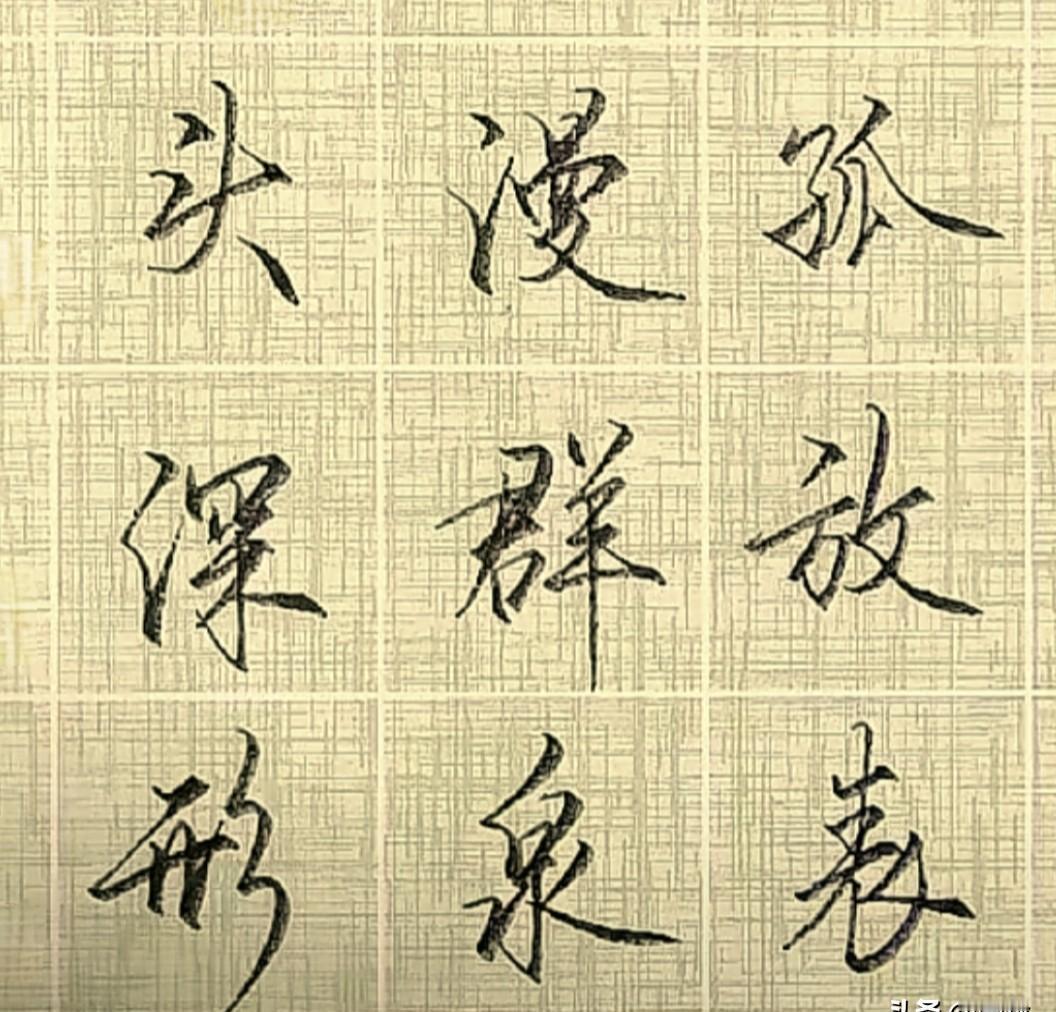 头漫孤
深群放
形泉表
头条